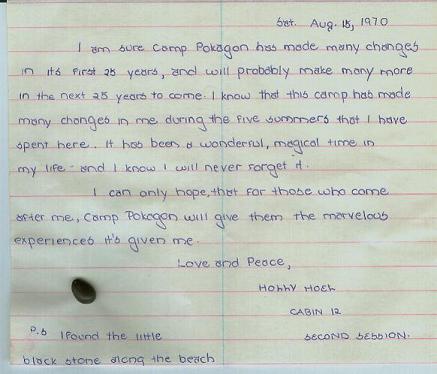 Sat. Aug. 15, 1970
I am sure Camp Pokagon has made many changes
in its first 25 years, and will probably make many more
in the next 25 years to come. I know that this camp has made
many changes in me during the five summers that I have
spent here. It has been a wonderful, magical time in
my life - and I know I will never forget it.
I can only hope, that for those who come
after me, Camp Pokagon will give them the marvelous
experiences it's given me.
Love and Peace,
Holly Hoeh
CABIN 12
SECOND SESSION.
P.S I found the little
black stone along the beach